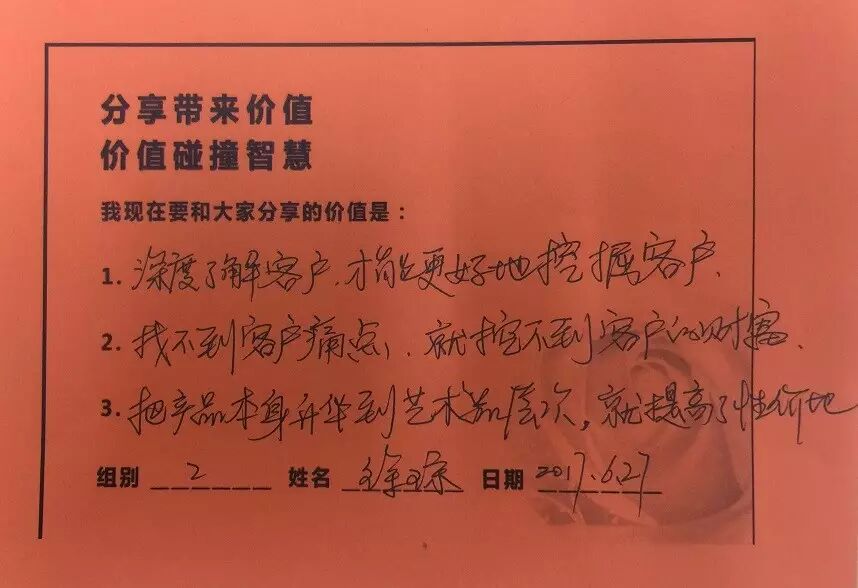 分享带来价值
价值碰撞智慧
我现在要和大家分享的价值是：
1. 深度了解客户,才能更好地挖掘客户.
2. 找不到客户痛点,就挖不到客户的财富、
3. 把产品本身升华到艺术品层次,就提高了性价地
组别 2 姓名 日期 2017.6.27